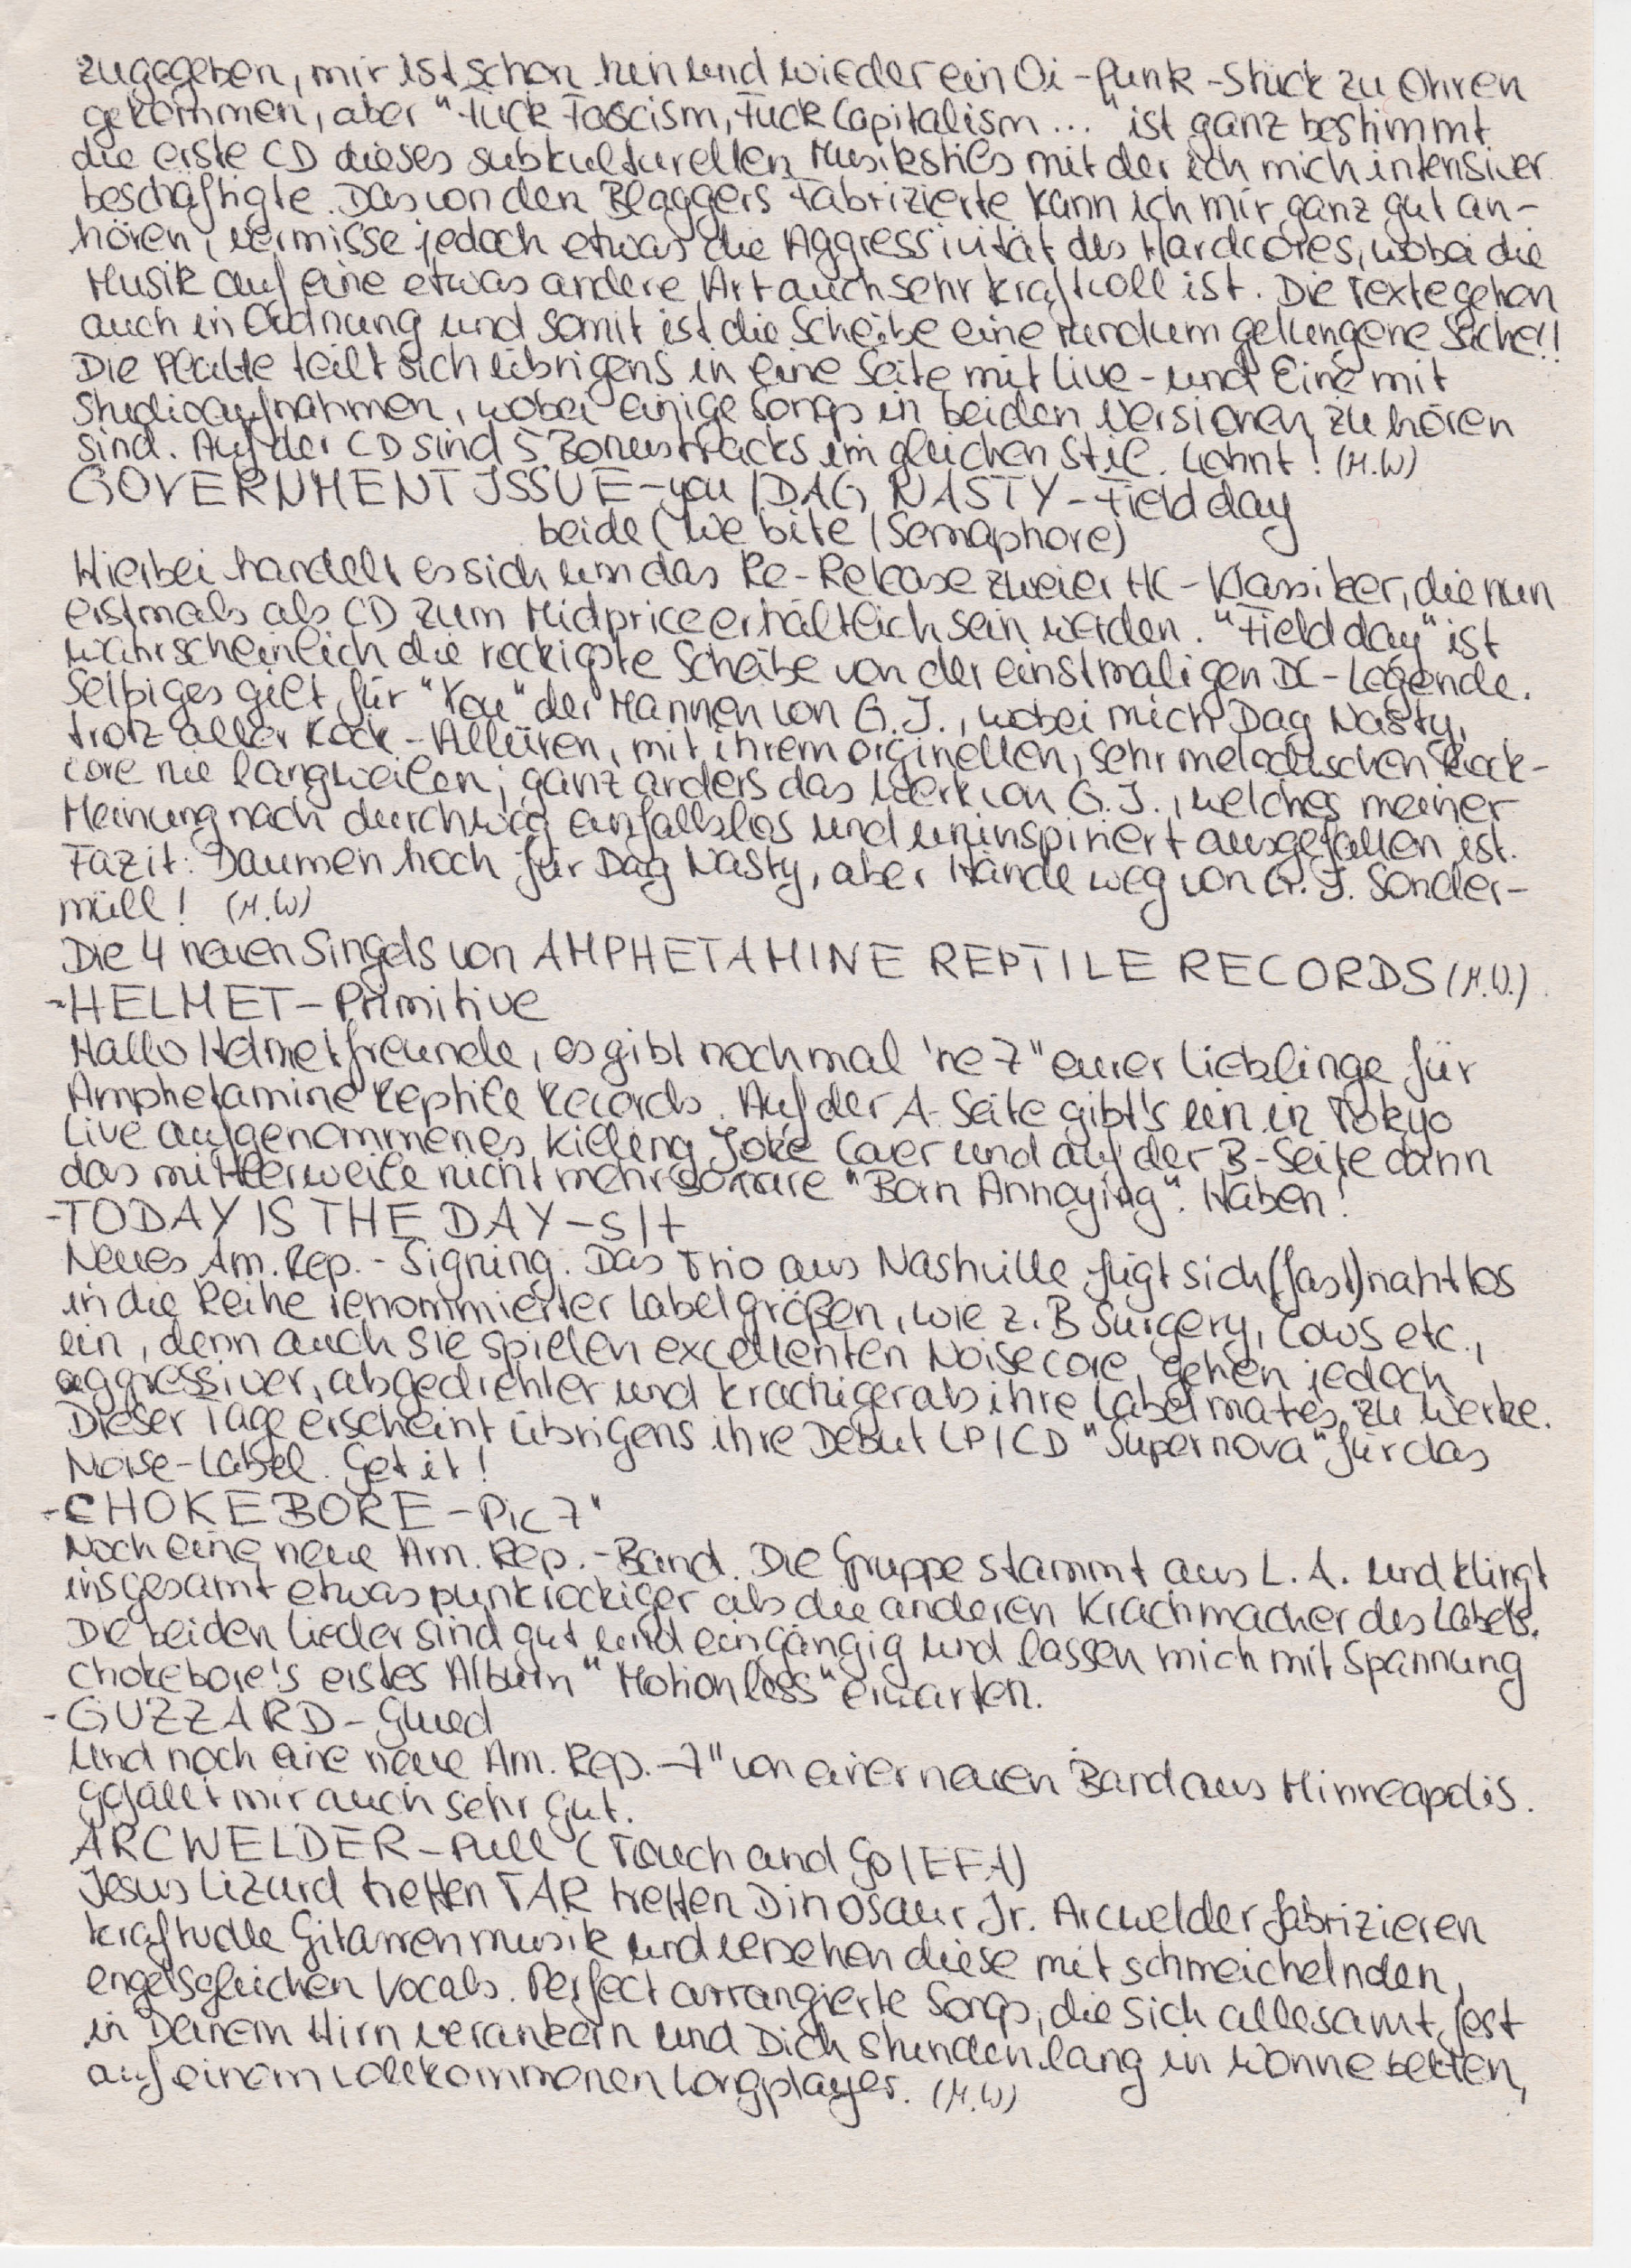 zugegeben, mir ist schon hin und wieder ein Oi-Punk-Stück zu Ohren
gekommen, aber "Fuck Fascism, Fuck Capitalism..." ist ganz bestimmt
die erste CD dieses subkulturellen Musikstils mit der ich mich intensiver
beschäftigte. Das von den Blaggers Fabrizierte kann ich mir ganz gut an-
hören, vermisse jedoch etwas die Aggressivität des Hardcores, wobei die
Musik auf eine etwas andere Art auch sehr kraftvoll ist. Die Texte gehen
auch in Ordnung und somit ist die Scheibe eine rundum gelungene Sache!!
Die Platte teilt sich übrigens in eine Seite mit Live- und Eine mit
Studioaufnahmen, wobei einige Songs in beiden Versionen zu hören
sind. Auf der CD sind 5 Bonustracks im gleichen Stil. Lohnt! (M.W)
GOVERNMENT ISSUE-you/DAG NASTY-Field day
beide (We bite/Semaphore)
Hierbei handelt es sich um das Re-Release zweier HC-Klassiker, die nun
erstmals als CD zum Midprice erhältlich sein werden. "Field day" ist
wahrscheinlich die rockigste Scheibe von der einstmaligen DC-Legende.
Selbiges gilt für "You" der Mannen von G.I., wobei mich Dag Nasty,
trotz aller Rock-Allüren, mit ihrem orginellen, sehr melodischen Rock-
core nie langweilen; ganz anders das Werk von G.I., welches meiner
Meinung nach durchweg einfallslos und uninspiriert ausgefallen ist.
Fazit: Daumen hoch für Dag Nasty, aber Hände weg von G.I. Sonder-
müll! (M.W)
Die 4 neuen Singels von AMPHETAMINE REPTILE RECORDS (M.W.)
-HELMET-Primitive
Hallo Helmetfreunde, es gibt nochmal 'ne 7" eurer Lieblinge für
Amphetamine Reptile Records. Auf der A-Seite gibt's ein in Tokyo
Live aufgenommenes Killing Joke Cover und auf der B-Seite dann
das mittlerweile nicht mehr so rare "Born Annoying". Haben!
-TODAY IS THE DAY-s/t
Neues Am. Rep.-Signing. Das Trio aus Nashville fügt sich (fast) nahtlos
in die Reihe renommierter Labelgrößen, wie z.B Surgery, Cows etc.,
ein, denn auch sie spielen excellenten Noisecore, gehen jedoch
aggressiver, abgedrehter und krachiger als ihre Labelmates zu Werke.
Dieser Tage erscheint übrigens ihre Debut LP/CD "Supernova" für das
Noise-Label. Get it!
-CHOKEBORE-Pic 7"
Noch eine neue Am. Rep.-Band. Die Gruppe stammt aus L.A. und klingt
insgesamt etwas punkrockiger als die anderen Krachmacher des Labels.
Die beiden Lieder sind gut und eingängig und lassen mich mit Spannung
Chokebore's erstes Album "Motionless" erwarten.
-GUZZARD-Glued
Und noch eine neue Am. Rep.-7" von einer neuen Band aus Minneapolis.
Gefällt mir auch sehr gut.
ARCWELDER-Pull (Touch and Go/EFA)
Jesus Lizard treffen TAR treffen Dinosaur Jr. Arcwelder fabrizieren
kraftvolle Gitarrenmusik und versehen diese mit schmeichelnden,
engelsgleichen Vocals. Perfect arrangierte Songs, die sich allesamt fest
in Deinem Hirn verankern und Dich stundenlang in Wonne betten,
auf einem vollkommenen Longplayer. (M.W)